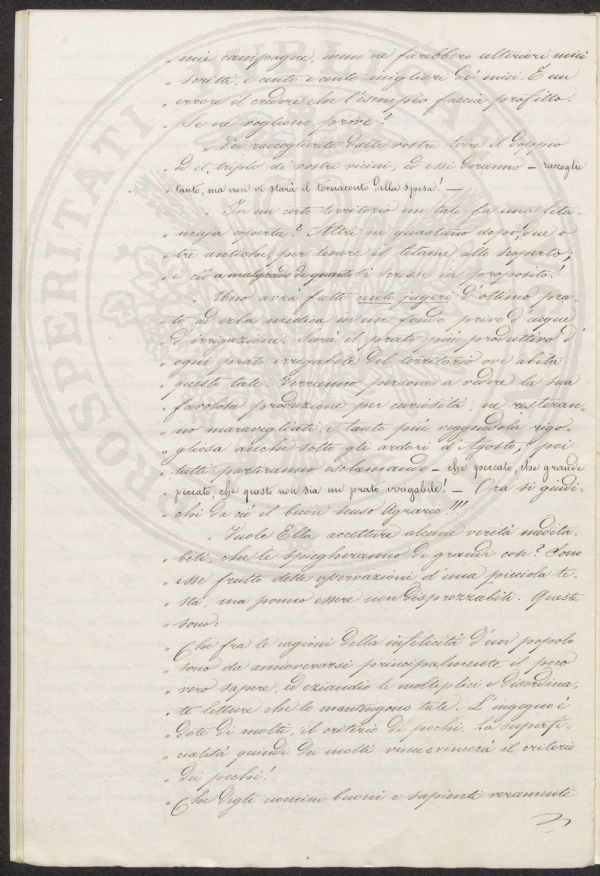 " mie campagne, meno ne farebbero ulteriori miei
" scritti, e cento e cento migliori de' miei. È un
" errore il credere che l'esempio faccia profitto.
" Se ne vogliono prove?
" Voi raccoglierete dalle vostre terre il doppio
" ed il triplo de' vostri vicini, ed essi diranno – raccoglie
" tanto, ma non vi starà il tornaconto della spesa! –
" In un certo territorio un tale fa una leta-
" maja coperta? Altri ne guastano dopo due o
" tre antiche, per tenere il letame allo scoperto,
" e ciò a malgrado di quanto si scrisse in proposito!
" Uno avrà fatto cento jugeri d'ottimo pra-
" to ad erba medica in un fondo privo d'acque
" d'irrigazione. Sarà il prato più produttivo d'
" ogni prato irrigabile del territorio ove abita
" questo tale. Verranno persone a vedere la sua
" favolosa produzione per curiosità, ne resteran-
" no maravigliati, e tanto più veggendola rigo-
" gliosa anche sotto gli ardori d'Agosto; poi
" tutti partiranno esclamando – che peccato, che grande
" peccato, che questo non sia un prato irrigabile! – Ora si giudi-
" chi da ciò il buon senso Agrario!!!
" Vuole Ella accettare alcune verità indubita-
" bili, che le spiegheranno di grandi cose? Sono
" esse frutto delle osservazioni d'una picciola te-
" sta, ma ponno essere non disprezzabili. Queste
" sono:
" Che fra le cagioni della infelicità d'un popolo
" sono da annoverarsi principalmente il poco
" vero sapere, ed eziandio le moltiplici e disordina-
" te letture che lo mantengono tale. L'ingegno è
" dote di molti, il criterio di pochi. La superfi-
" cialità quindi dei molti vince e vincerà il criterio
" dei pochi!
" Che degli uomini buoni e sapienti veramente
PROSPERITATI PUBLICAE